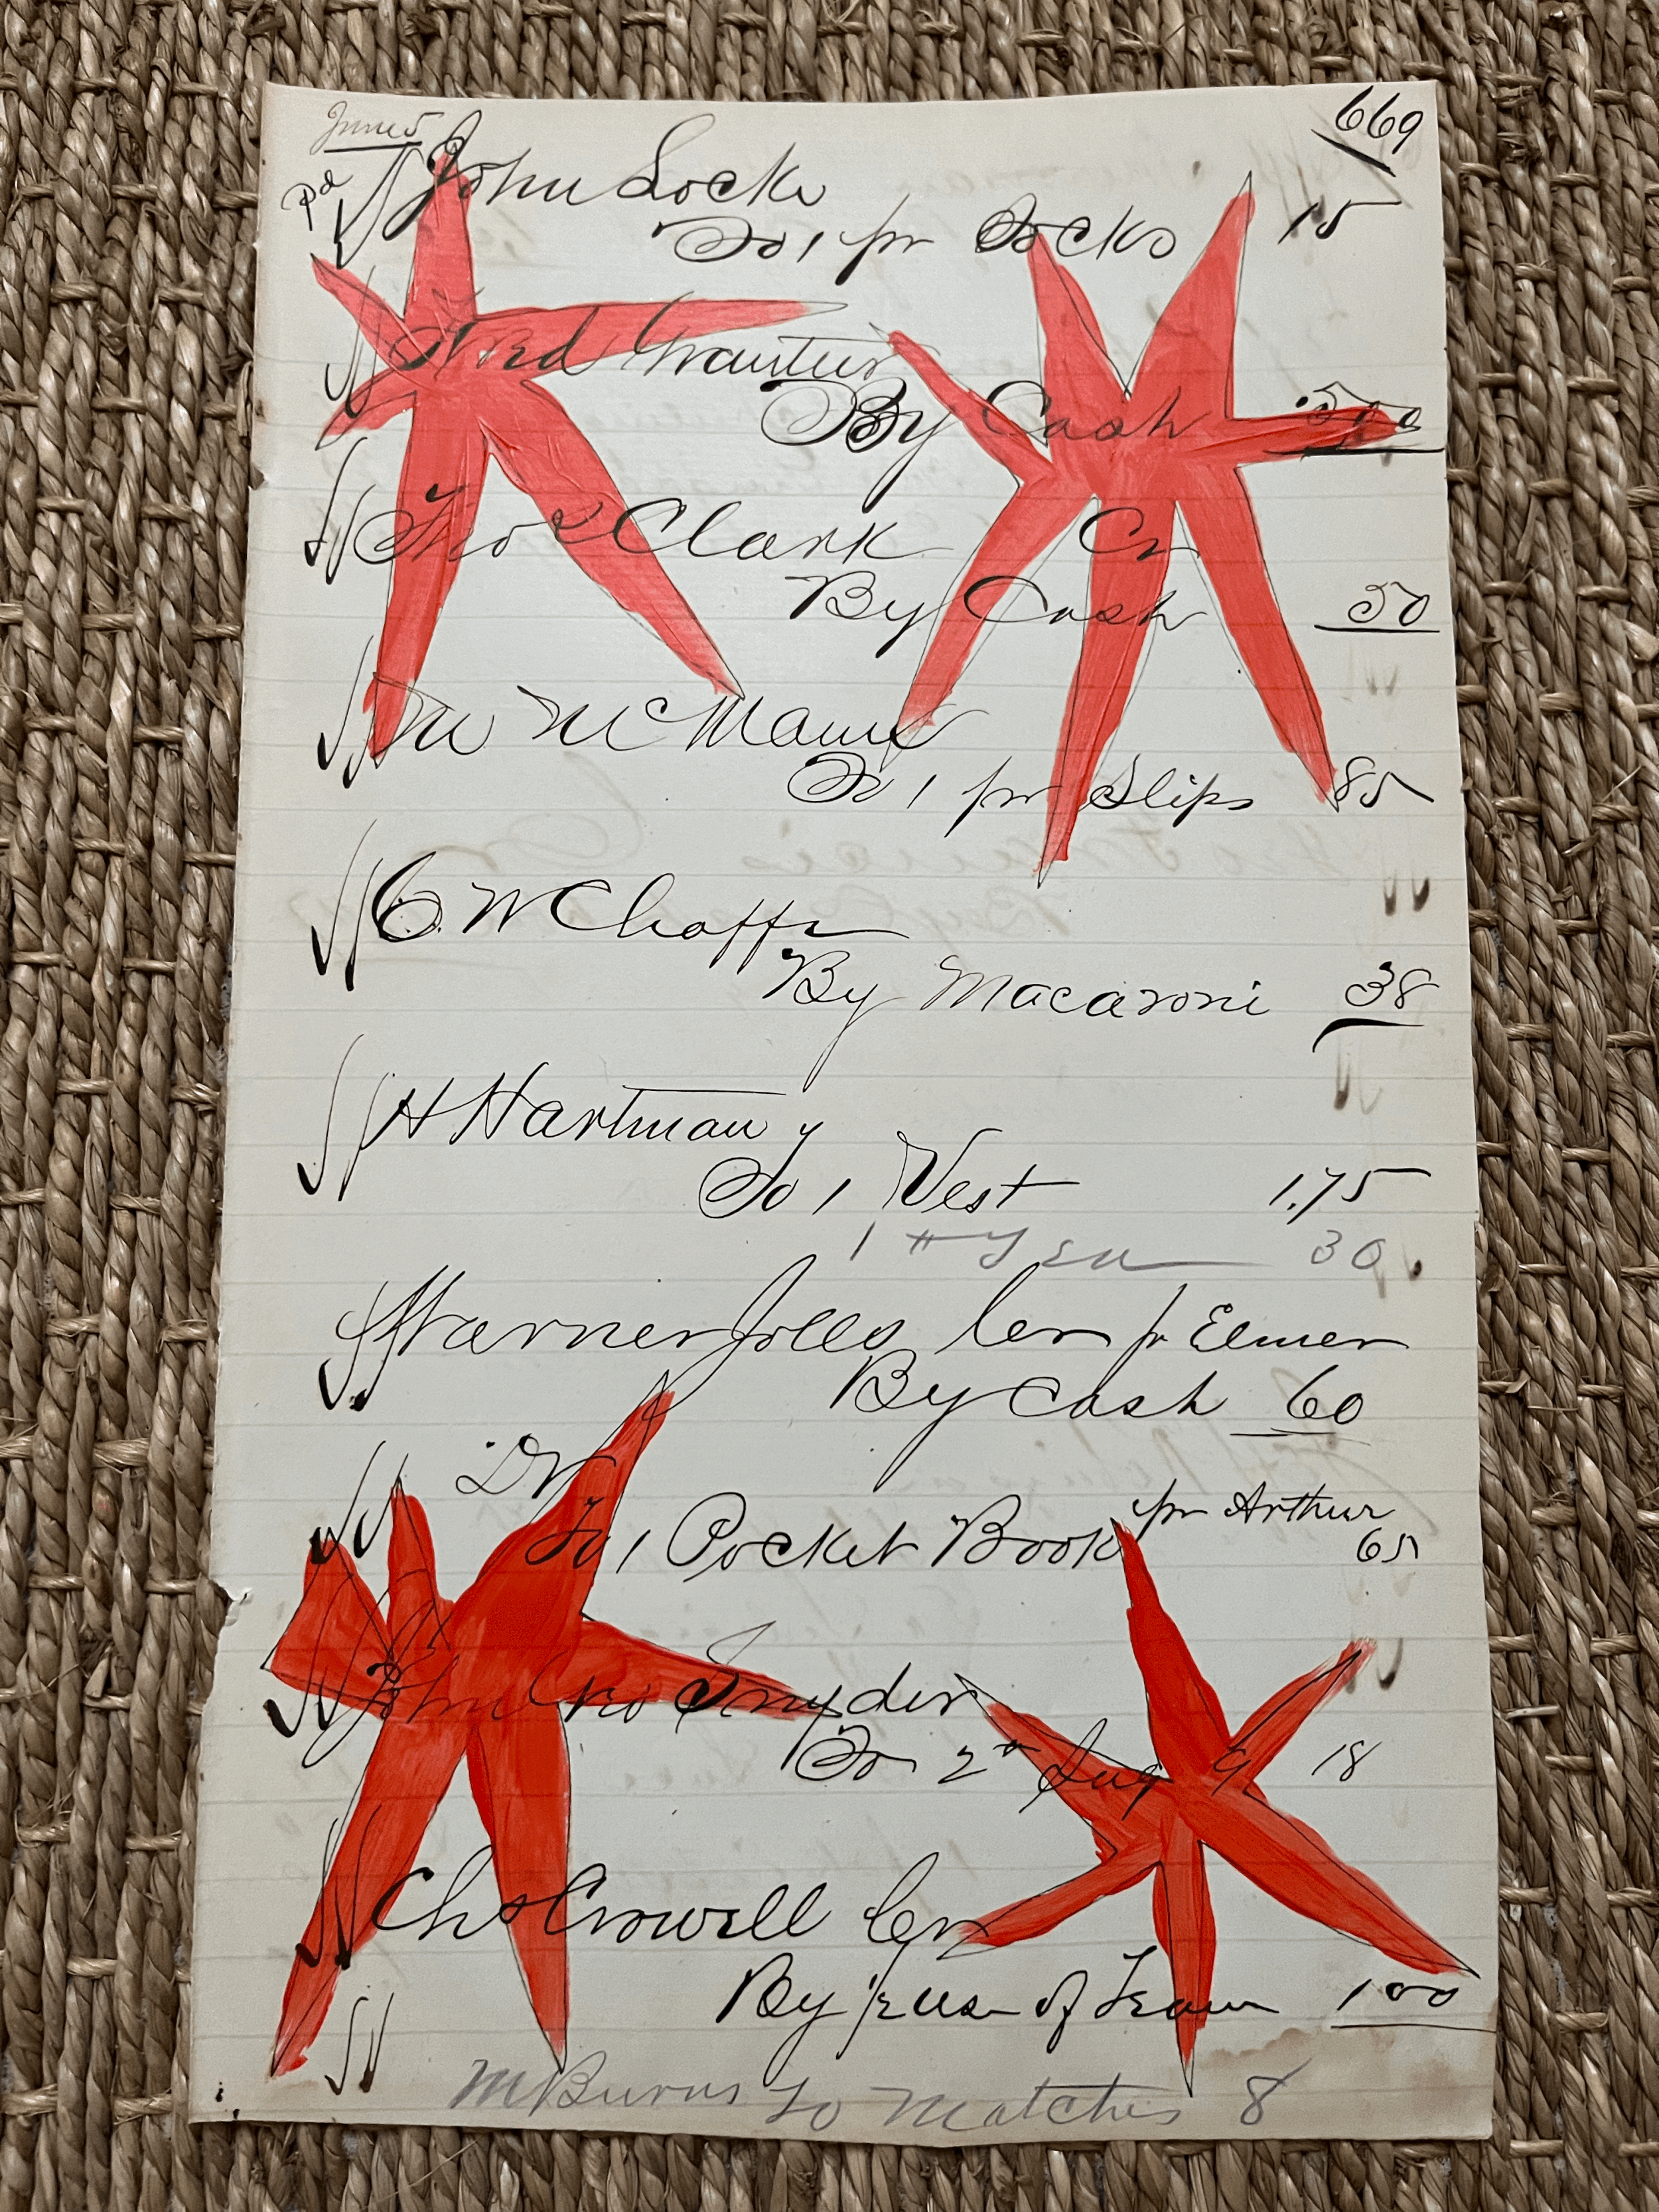 June 5 669
pd John Locke
To 1 pr Socks 15
Fred
By Cash 500
Thos Clark Cr
By Cash 50
M McMann
To 1 pr Slips 85
C. W Chaffe
By Macaroni 38
H Hartman
To 1 Vest 1.75
1 # Tea 30
Warner Jolls Cr pr Elmer
By Cash 60
Dr
To 1 Pocket Book pr Arthur 65
John Geo Snyder
To 2 # Sug 9 18
Chs Crowell Cr
By use of Team 100
M Burns To Matches 8